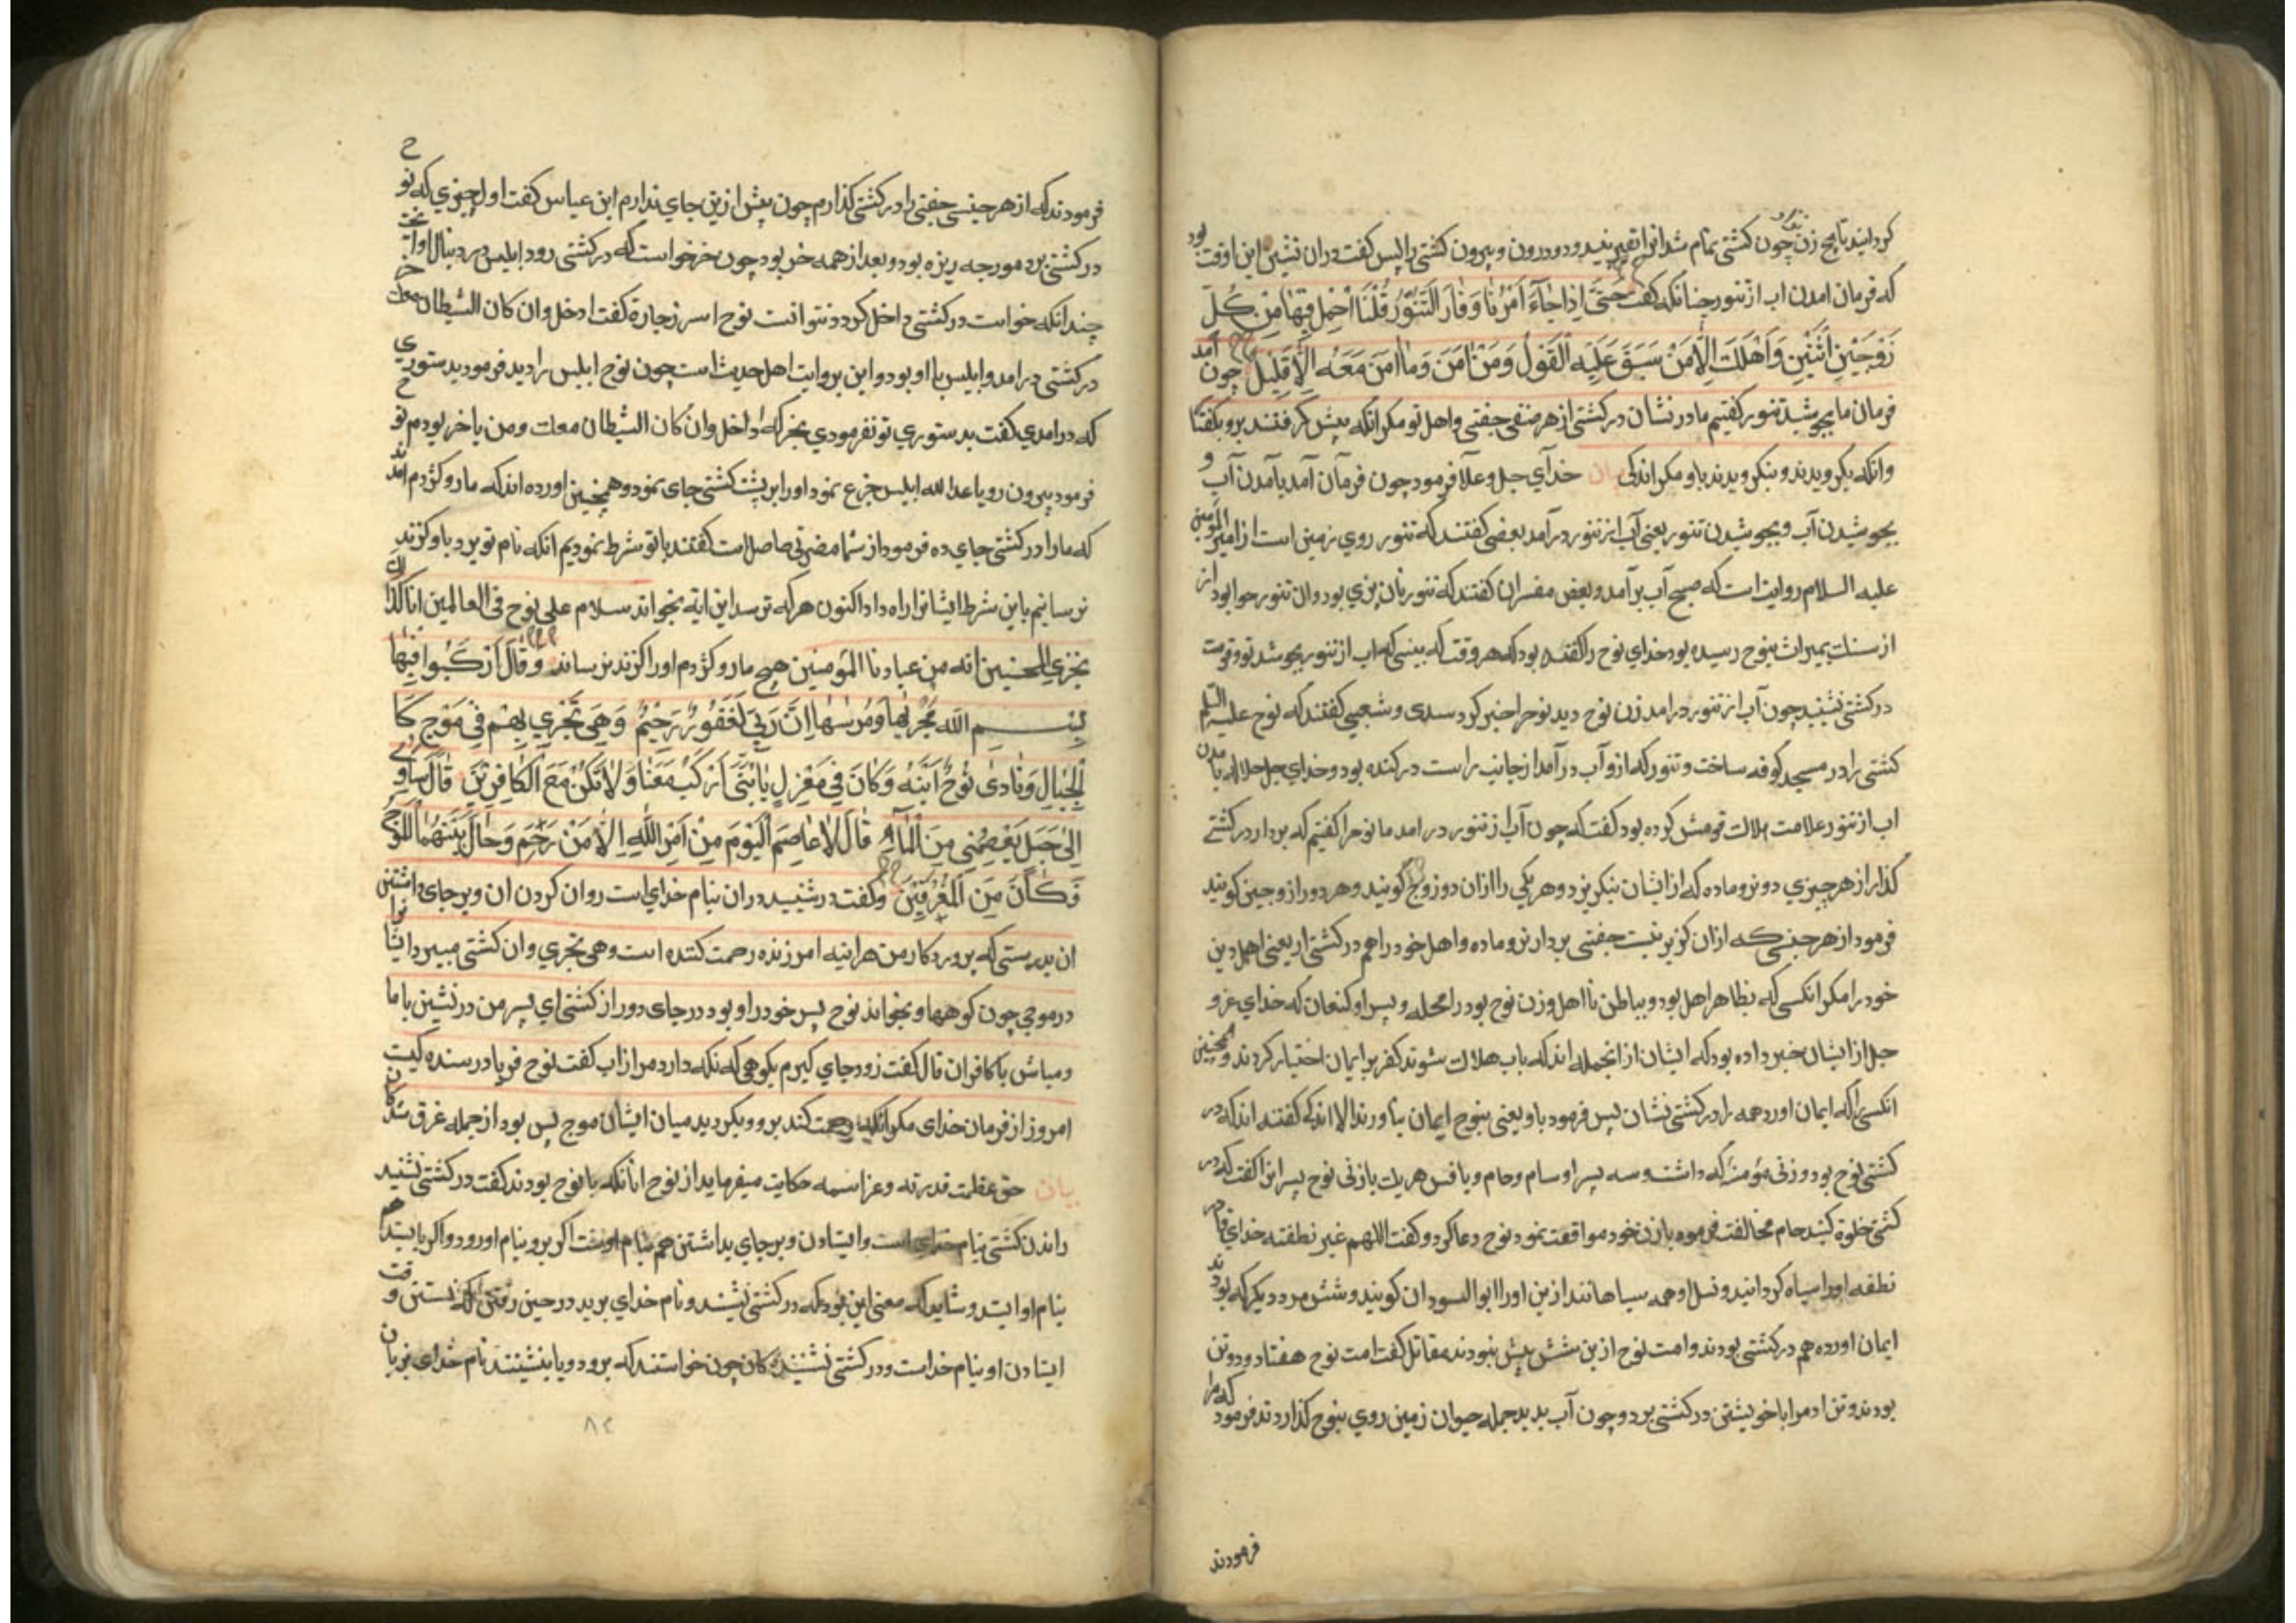 که فرمان امدن اب از تنور چنانکه گفت حَتّىٰ اِذا جٰآءَ اَمْرُنٰا وَفٰارَ التَّنُّورُ قُلْنَا احْمِلْ فيهٰا مِنْ كُلِّ
زَوْجَيْنِ اثْنَيْنِ وَاَهْلَكَ اِلّٰا مَنْ سَبَقَ عَلَيْهِ الْقَوْلُ وَمَنْ اٰمَنَ وَمٰا اٰمَنَ مَعَهُ اِلّٰا قَليلٌ چون آمد
فرمان ما بجوشید تنور کفتیم ما در نشان در کشتی از هر صنفی جفتی واهل تو مکر انکه پیش کرفتند برو بکفتا
وانکه بکرویدند و بنکرویدند باو مکر اندکی بیان خدآی جل وعلا فرمود چون فرمان آمد بآمدن آب و
بجوشیدن آب وبجوشیدن تنور یعنی آب از تنور درآمد بعضی کفتند که تنور روی زمین است از امیر المؤمنین
علیه السلام روایت است که صبح آب برآمد و بعض مفسران کفتند که تنور نان پزی بود وان تنور حوا بود از
از سنک بمیراث بنوح رسیده بود خدای نوح را کفته بود که هر وقت که بینی که اب از تنور بجوشد تو وقومت
در کشتی نشینید چون آب از تنور درامد زن نوح دید نوح را خبر کرد سدی و شعبی کفتند که نوح علیه السلم
کشتی را در مسجد کوفه ساخت و تنور که ازو آب درآمد از جانب راست در کنده بود وخدای جل جلاله بامدن
اب از تنور علامت هلاک قومش کرده بود کفت که چون آب از تنور درامد ما نوح را کفتیم که بردار در کشتی
کذار از هر چیزی دو نر وماده که از ایشان بنکریزد وهر یکی را ازان دو زوج کویند وهر دو را زوجین کویند
فرمود از هر جنسی که ازان کزیر نیست جفتی بردار نر و ماده واهل خود را هم در کشتی ار یعنی اهل دین
خود را مکر انکسی که بظاهر اهل بود و بباطن نا اهل وزن نوح بود راحله وپسر او کنعان که خدای عز و
جل از ایشان خبر داده بود که ایشان از انجمله اند که باب هلاک شوند کفر بر ایمان اختیار کردند و همچنین
انکسی را که ایمان اورد همه را در کشتی نشان پس فرمود باو یعنی بنوح ایمان نیاوردند الا اندکی کفتند اند که در
کشتی نوح بود و زنی مؤمنه که داشت وسه پسر او سام وحام ویافس هریک بازنی نوح پسرانرا کفت که در
کشتی خلوة کنید حام مخالفت فرموده بازن خود مواقعت نمود نوح دعا کرد و کفت اللهم غیر نطفته خدای قادر
نطفه اورا سیاه کردانید ونسل او همه سیاهانند ازین اورا ابو السودان کویند و شش مرد دیکر که بودند
ایمان اورده هم در کشتی بودند وامت نوح ازین شش بیش نبودند مقاتل کفت امت نوح هفتاد ودوتن
بودند وتن ادم را با خویشتن در کشتی برد وچون آب بدید جمله حیوان زمین روی بنوح کذاردند فرمود که مرا
فرمودند
فرمودند که از هر جنسی جفتی را در کشتی کذارم چون بیش ازین جای ندارم ابن عباس کفت اول چیزی که نوح
در کشتی برد مورچه ریزه بود وبعد از همه خر بود چون خر خواست که در کشتی رود ابلیس در دنبال او
چندانکه خواست در کشتی داخل کردد نتوانست نوح کفت ادخل وان کان الشیطان معک
در کشتی درامد وابلیس با او بود واین بروایت اهل حدیث است چون نوح ابلیس را دید فرمود بدستوری
که درامدی کفت بدستوری تو نفرمودی بخر که ادخل وان کان الشیطان معک ومن باخر بودم نوح
فرمود بیرون رو یا عدو الله ابلیس جزع نمود اورا بر پشت کشتی جای نمود وهمچنین اورده اند که مار وکژدم امدند
که مارا در کشتی جای ده فرمود از شما مضرتی حاصلست کفتند با تو شرط نمودیم انکه نام تو برد باو کزند
نرسانیم باین شرط ایشانرا راه داد اکنون هر که ترسد این ایه بخواند سلام علی نوح فی العالمین انا کذلک
نجزی المحسنین انه من عبادنا المؤمنین هیچ مار وکژدم اورا کزند نرساند وَقٰالَ ارْكَبُوا فيهٰا
بِسْمِ اللهِ مَجْرٰيهٰا وَمُرْسٰىهٰا اِنَّ رَبّي لَغَفُورٌ رَحيمٌ وَهِيَ تَجْري بِهِمْ في مَوْجٍ كَا
لْجِبٰالِ وَنٰادىٰ نُوحٌ ابْنَهُ وَكٰانَ في مَعْزِلٍ يٰا بُنَيَّ ارْكَبْ مَعَنٰا وَلٰا تَكُنْ مَعَ الْكٰافِرينَ قٰالَ سَاٰوي
اِلىٰ جَبَلٍ يَعْصِمُني مِنَ الْمٰآءِ قٰالَ لٰا عٰاصِمَ الْيَوْمَ مِنْ اَمْرِ اللهِ اِلّٰا مَنْ رَحِمَ وَحٰالَ بَيْنَهُمَا الْمَوْجُ
فَكٰانَ مِنَ الْمُغْرَقينَ وکفت درنشینید دران بنام خدای است روان کردن ان وبر جای داشتن
ان بدرستی که پروردکار من هراینه امرزنده رحمت کننده است وهی تجری وان کشتی میبرد ایشانرا
در موجی چون کوهها وبخواند نوح پسر خود را و بود در جای دور از کشتی ای پسر من درنشین با ما
ومباش با کافران قال کفت زود جای کیرم بکوهی که نکه دارد مرا از اب کفت نوح فریاد رسنده نیست
امروز از فرمان خدای مکر انکه رحمت کند برو وبکردید میان ایشان موج پس بود از جمله غرق شدکان
بیان حق عظمت قدرته وعز اسمه حکایت میفرماید از نوح انانکه با نوح بودند کفت در کشتی نشینید
راندن کشتی بنام خدای است وایستادن وبر جای بداشتن هم بنام اوست اکر برو بنام او رود واکر بایستد هم
بنام او ایستد وشاید که معنی این بود که در کشتی نشینند ونام خدای برید در حین رفتن نشستن و
ایستادن او بنام خداست ودر کشتی نشینندکان چون خواستند که برود ویا بنشینند نام خدای بر زبان